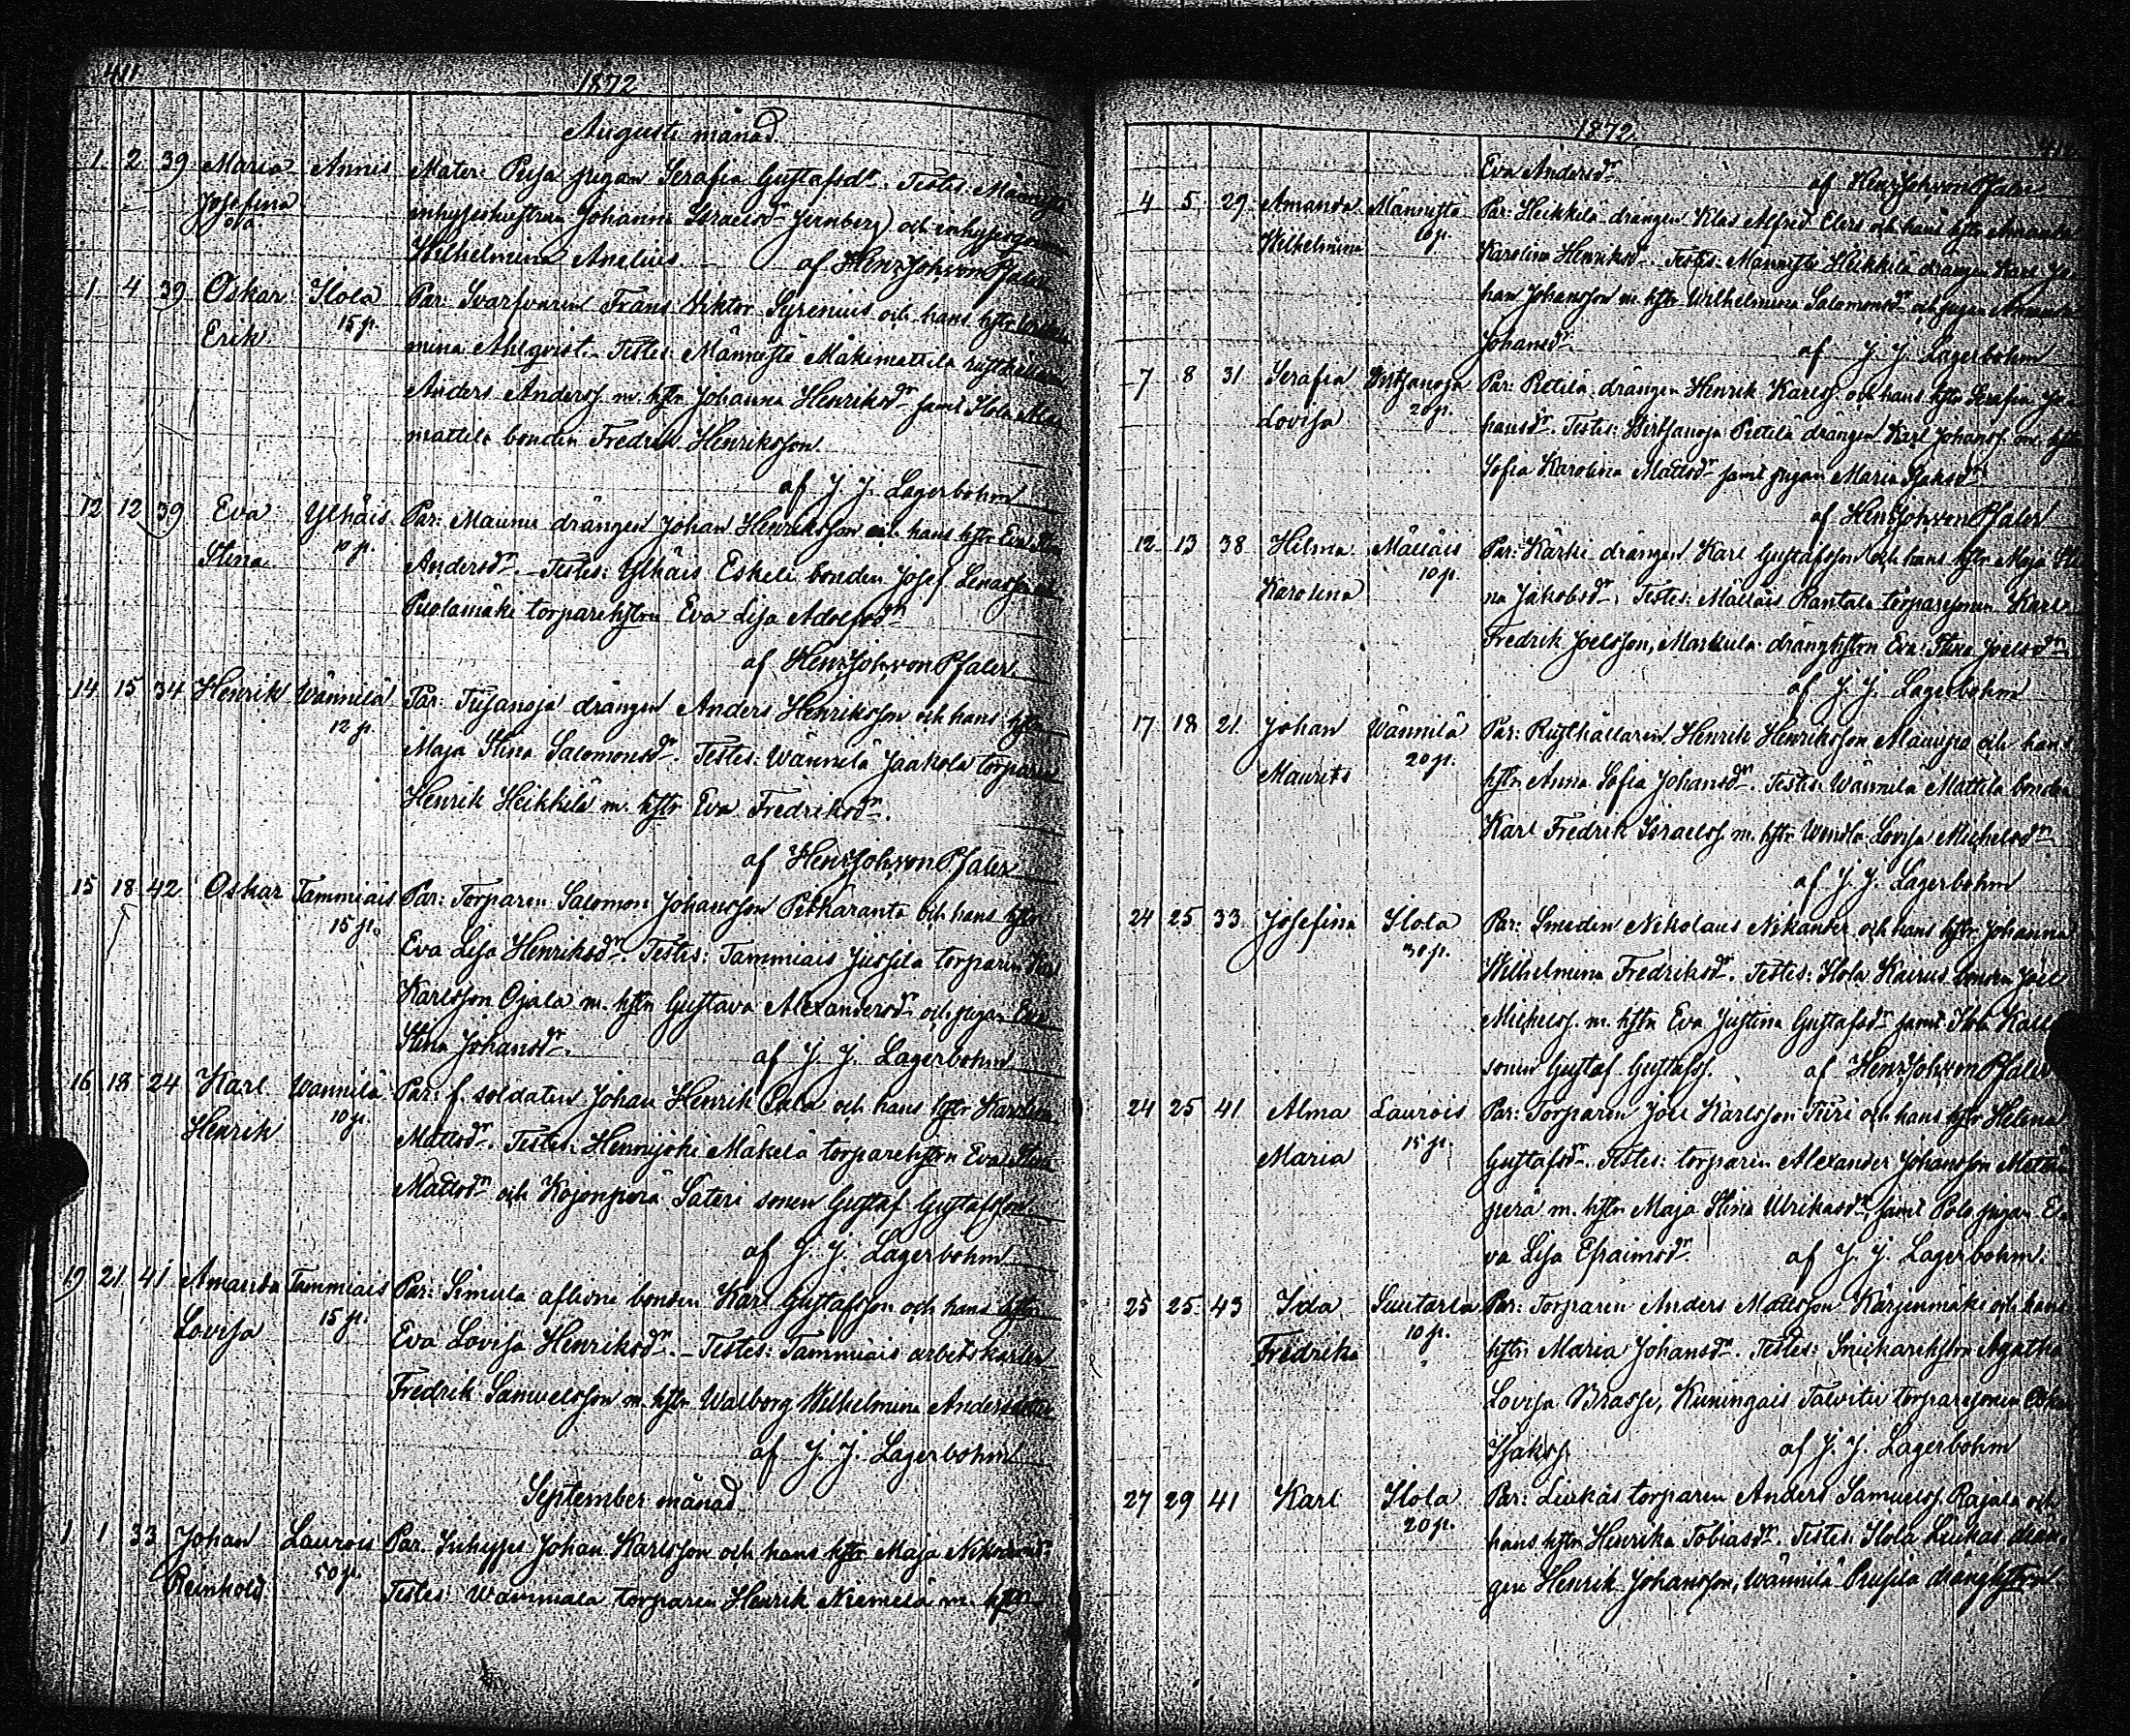 411
1872
Augusti månad.
1. 2 39 Maria Annis Mater: pigan Serafia Gustafsdr. Testes:
Josefina inhyseshustrun Johanna Israelsdr Jernberg och
oä. Wilhelmina Anelius. af Henr. Joh. von Pfaler
1 4 39 Oskar Ilola Par: Svarfvaren Frans Viktor Syrenius och hans hstr
Erik 15 p. mina Ahlqvist. Testes: Männistö Mäkimattila rusthållaren
Anders Anderss. m. hstr Johanna Henriksdr samt Ilola
mattila bonden Fredrik Henriksson.
af J. J. Lagerbohm
12 12 39 Eva Ylhäis Par: Maunu drängen Johan Henriksson och hans hstr Eva
Stina 10 p. Andersdr. Testes: Ylhäis Eskeli bonden Josef
Puolamäki torparehstrn Eva Lisa Adolfsdr
af Henr. Joh. von Pfaler.
14 15 34 Henrik Wännilä Par: Tujanoja drängen Anders Henriksson och hans hstr
12 p. Maja Stina Salomonsdr. Testes: Wännilä Jaakola torparen
Henrik Heikkilä m. hstr Eva Fredriksdr.
af Henr. Joh. von Pfaler
15 18 42 Oskar Tammiais Par: Torparen Salomon Johansson Pitkäranta och hans hstr
15 p. Eva Lisa Henriksdr. Testes: Tammiais Jussila torparen
Karlsson Ojala m. hstr Gustava Alexandersdr och pigan Eva
Stina Johansdr. af J. J. Lagerbohm
16 18 24 Karl Wännilä Par: f. soldaten Johan Henrik Pala och hans hstr Karolina
Henrik 10 p. Mattsdr. Testes: Hennijoki Mäkelä torparehstrn Eva Stina
Mattsdr och Kojonperä Säteri sonen Gustaf Gustafsson.
af J. J. Lagerbohm
19 21 41 Amanda Tammiais Par: Simula aflidne bonden Karl Gustafsson och hans hstr
Lovisa 15 p. Eva Lovisa Henriksdr. – Testes: Tammiais arbetskarlen
Fredrik Samuelsson m. hstr Walborg Wilhelmina
af J. J. Lagerbohm
September månad
1 1 33 Johan Laurois Par. Inhyses Johan Karlsson och hans hstr Maja
Reinhold 50 p. Testes: Wammala torparen Henrik Niemelä m. hstr
1872.
Eva Andersdr. af Henr. Joh. von Pfaler
4 5 29 Amanda Männistö Par: Heikkilä drängen Klas Alfred Elers och hans hstr Amanda
Wilhelmina 10 p. Karolina Henriksdr. Testes: Männistö Heikkilä drängen Karl Jo-
han Johansson m. hstr Wilhelmina Salomonsdr och pigan Amanda
Johansdr. af J. J. Lagerbohm
7 8 31 Serafia Wirtsanoja Par: Pietilä drängen Henrik Karlss. och hans hstr Serafia Jo-
Lovisa 20 p. hansdr. Testes: Wirtsanoja Pietilä drängen Karl Johanss. m. hstr
Sofia Karolina Mattsdr samt pigan Maria Isaksdr
af Henr. Joh. von Pfaler
12 13 38 Hilma Mälläis Par: Kärki drängen Karl Gustafsson och hans hstr Maja Sti-
Karolina 10 p. na Jakobsdr. Testes: Mälläis Rantala torparesonen Karl
Fredrik Joelsson, Markula dränghstrn Eva Stina Joelsdr
af J. J. Lagerbohm
17 18 21 Johan Wännilä Par: Rusthållaren Henrik Henriksson och hans
Maurits 20 p. hstr Anna Sofia Johansdr. Testes: Wännilä Mattila bonden
Karl Fredrik Israelss. m. hstr Wendla Lovisa Michelsdr
af J. J. Lagerbohm
24 25 33 Josefina Ilola Par: Smeden Nikolaus Nikander och hans hstr Johanna
30 p. Wilhelmina Fredriksdr. Testes: Ilola Kairus bonden Joel
Michelss. m. hstr Eva Justina Gustafsdr samt Ilola
sonen Gustaf Gustafss. af Henr. Joh. von Pfaler
24 25 41 Alma Laurois Par: Torparen Joel Karlsson Turi och hans hstr Helena
Maria 15 p. Gustafsdr. Testes: torparen Alexander Johansson
perä m. hstr Maja Stina Ulriksdr, samt Polo pigan E-
va Lisa Efraimsdr. af J. J. Lagerbohm.
25 25 43 Ida Suutarla Par: Torparen Anders Mattsson Karjenmäki och hans
Fredrika 10 p. hstr Maria Johansdr. Testes: Snickarehstrn Agatha
Lovisa Brasse, Kuningais Talvitie torparesonen
Isakss. af J. J. Lagerbohm
27 29 41 Karl Ilola Par: Liukas torparen Anders Samuelss. Rajala och
20 p. hans hstr Henrika Tobiasdr. Testes: Ilola Liukas drän-
gen Henrik Johansson, Wännilä Prusila dränghstrn